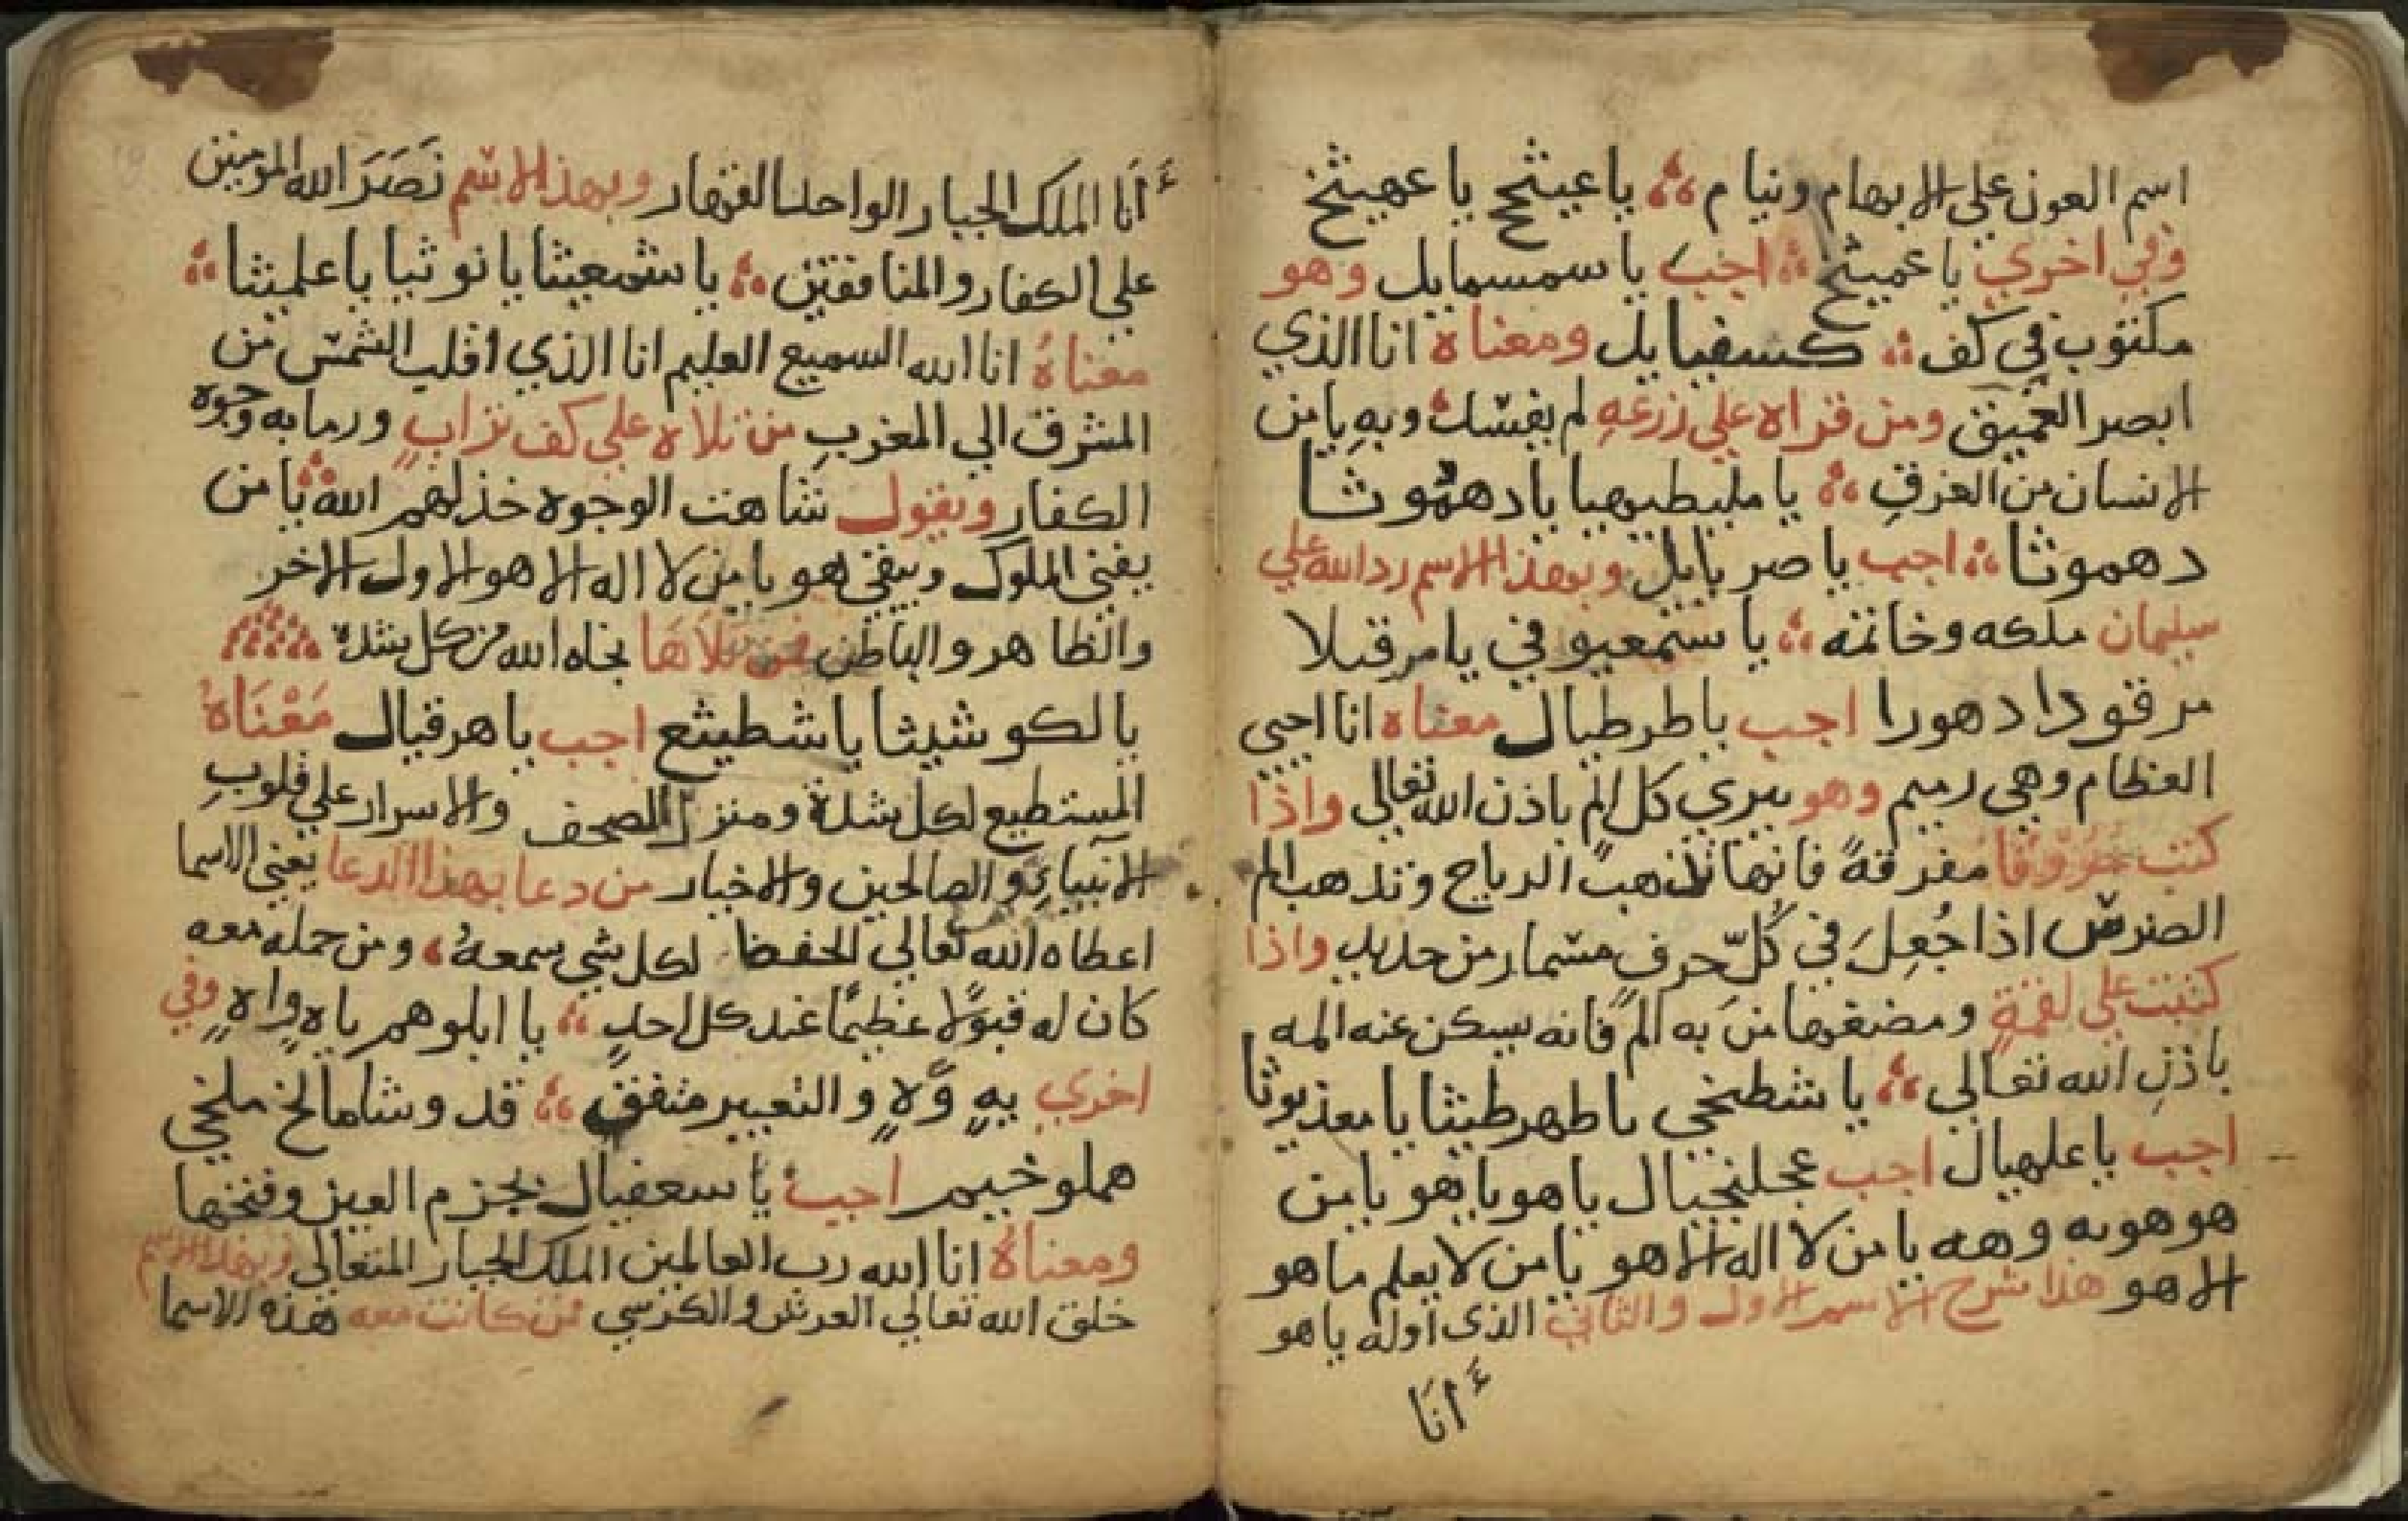 اسم العون على الابهام ونيام ؞ يا عيثخ يا عهيثخ
وفي اخري يا عميثخ ؞ اجب يا سمسمايل وهو
مكتوب في كف ؞ كسفيايل ومعناه انا الذي
ابصر العميق ومن قراه علي زرعه لم يفسد وبه يامن
الانسان من الغرق ؞ يا مليطيهيا يا دهموثا
دهموثا ؞ اجب يا صريايل وبهذا الاسم رد الله علي
سليمان ملكه وخاتمه ؞ يا يامرقيلا
مرقودا دهورا اجب يا طرطيال معناه انا احيي
العظام وهي رميم وهو يبري كل الم باذن الله تعالي واذا
كتبت حروفا مفرقة فانها تذهب الرياح وتذهب الم
الضرس اذا جُعِلَ في كُلّ حرفٍ مسمار من حديد واذا
كتبت علي لقمةٍ ومضغها من به المٌ فانه يسكن عنه المه
باذنِ الله تعالي ؞ يا شطيخي يا طهرطيثا يا معذيوثا
اجب يا علهيال اجب عجلنجيال يا هو يا هو يا من
هو هو به وهه يا من لا اله الا هو يا من لا يعلم ما هو
الا هو هذا شرح الاسم الاول والثاني الذي اوله يا هو
أنَا
أنَا الملك الجبار الواحد القهار وبهذا الاسم نَصَرَ الله المومنين
علي الكفار والمنافقين ؞ يا شمعيثا يا نوثيا يا علميثا ؞
معناهُ انا الله السميع العليم انا الذي اقلب الشمس من
المشرق الي المغربِ من تلاه علي كف ترابٍ ورما به وجوه
الكفار ويقول شاهت الوجوه خذلهم الله يا من
يفني الملوك ويبقي هو يا من لا اله الا هو الاول الاخر
والظاهر والباطن من تلاها نجاه الله من كل شدة ؞
يا لكوشيثا يا شطيثع اجب يا هرقيال مَعْنَاهُ
المستطيع لكل شدة ومنزل الصحف والاسرار علي قلوبِ
الانبياءِ والصالحين والاخيار من دعا بهذا الدعا يعني الاسما
اعطاه الله تعالي الحفظ لكل شي سمعهُ ومن حمله معه
كان له قبولًا عظيمًا عند كل احدٍ ؞ يا ابلوهم ياهٍ واهٍ وفي
اخري يهٍ وَّهٍ والتعبير متفق ؞ قد وشامالخ ملخي
هملوخييم اجب يا سعفيال بجزم العين وفتحها
ومعناهُ انا الله رب العالمين الملك الجبار المتعالي وبهذا الاسم
خلق الله تعالي العرش والكرسي من كانت معه هذه الاسما